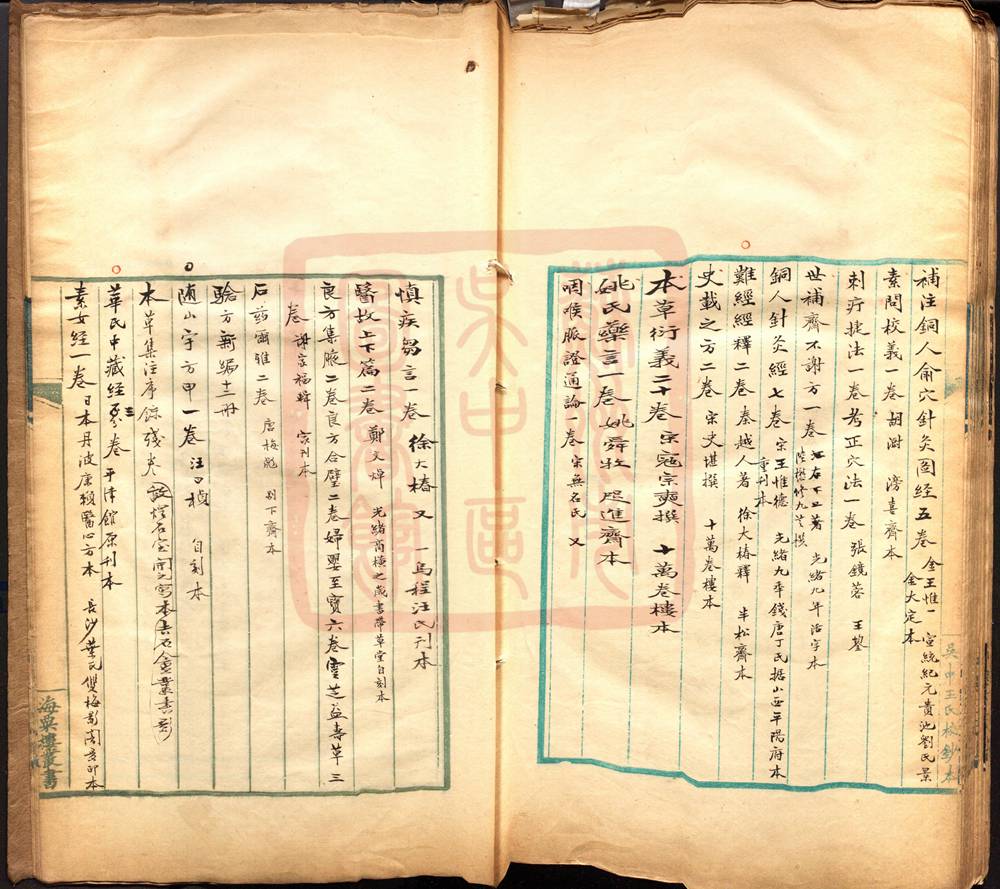 補注銅人俞穴針灸圖經五卷 金王惟一 宣統紀元貴池劉氏景
金大定本
素問校義一卷 胡澍 滂喜齋本
刺疔捷法一卷考正穴法一卷 張鏡蓉 王塋
世補齋不謝方一卷 陸懋修九芝撰 光緒九年活字本
銅人針灸經七卷 宋王惟德 光緒九年錢唐丁氏据山西平陽府本
重刊本
難經經釋二卷 秦越人著 徐大椿釋 半松齋本
史載之方二卷 宋史堪撰 十萬卷樓本
本草衍義二十卷 宋寇宗奭撰 十萬卷樓本
姚氏藥言一卷 姚舜牧 咫進齋本
咽喉脈證通論一卷 宋無名氏 又
慎疾芻言一卷 徐大椿 又 一烏程汪氏刊本
醫故上下篇二卷 鄭文焯 光緒商橫之歲書帶草堂自刻本
良方集腋二卷良方合璧二卷婦嬰至寶六卷靈芝益壽草三
卷 謝家福輯 家刊本
石藥爾雅二卷 唐梅彪 別下齋本
驗方新編十二冊
隨山宇方甲一卷 汪曰楨 自刻本
本草集注序錄殘卷 敦煌石室開元寫本吉石盦叢書影
華氏中藏經三卷 平津館原刊本
素女經一卷 日本丹波康賴醫心方本 長沙葉氏雙梅影闇刻本
吳中王氏校鈔本
海粟樓叢書